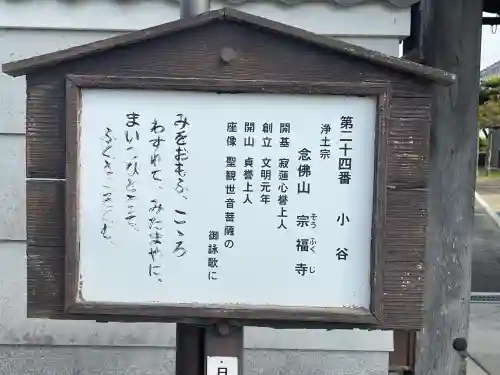 第二十四番　小谷
浄土宗
念佛山　宗福寺
そう ふく じ
開基　寂蓮心誉上人
創立　文明元年
開山　貞誉上人
座像　聖観世音菩薩の
御詠歌に
みをおもふ、こゝろ
わすれて、みたまやに、
まいる
日